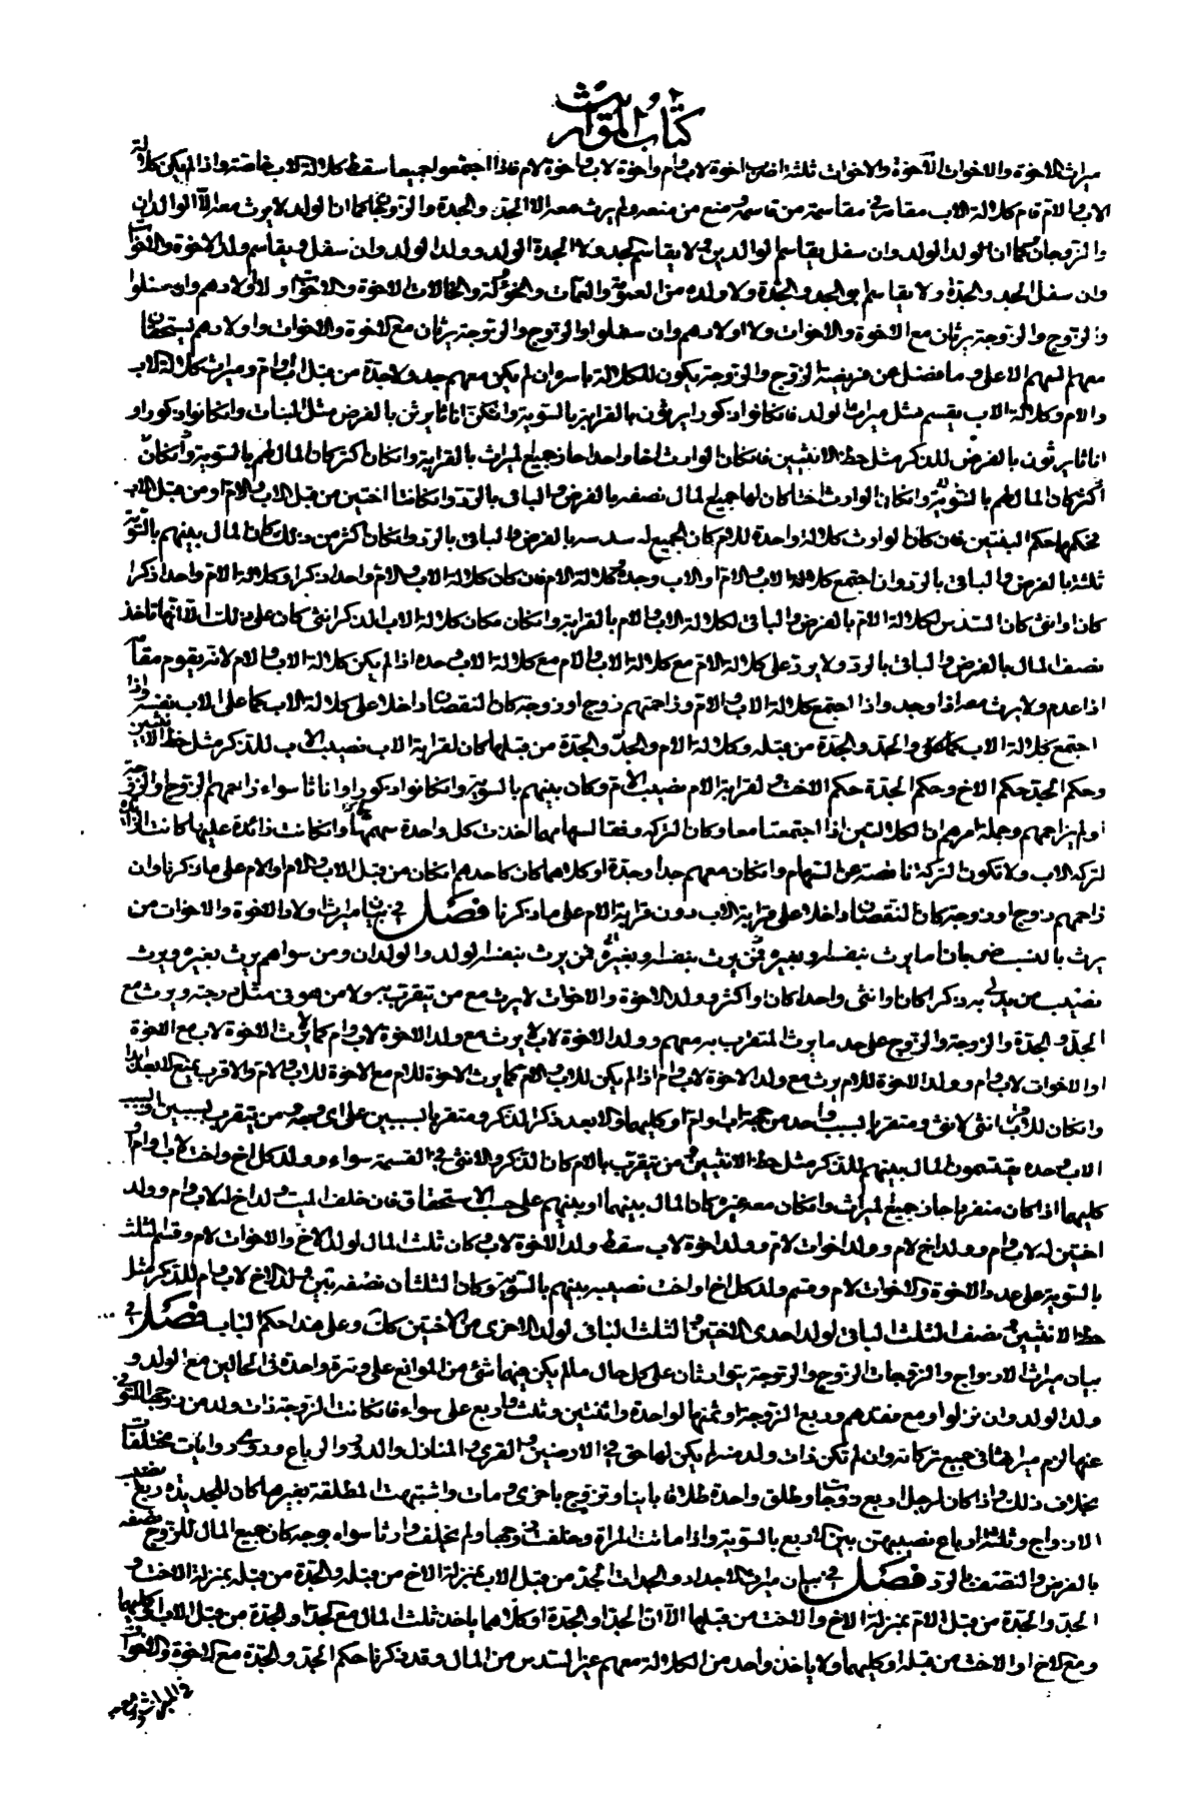 كتاب المواريث
ميراث الاخوة والاخوات الاخوة والاخوات ثلثة اضرب اخوة لاب وام واخوة لاب واخوة لام فاذا اجتمعوا جميعا سقط كلالة الاب خاصة واذا لم يكن كلالة
الاب والام قام كلالة الاب مقامه في مقاسمة من قاسمه ومنع من منعه ولم يرث معه الا الجد والجدة والزوجان كما ان الولد لا يرث معه الا الوالدان
والزوجان وكما ان الولد الولد وان سفل يقاسم الوالدين ولا يقاسم الجد ولا الجدة الولد وولد الولد وان سفل ويقاسم ولد الاخوة والاخوات
وان سفل الجد والجدة ولا يقاسم ابو الجد والجدة ولا ولده من العمومة والعمات والخؤلة والخالات الاخوة والاخوات ولا اولادهم وان سفلوا
والزوج والزوجة يرثان مع الاخوة والاخوات ولا اولادهم وان سفلوا والزوج والزوجة يرثان مع الاخوة والاخوات واولادهم يستحقان
معهم السهم الاعلى وما فضل عن فريضة الزوج والزوجة يكون للكلالة باسره ان لم يكن معهم جد ولا جدة من قبل اب وام وميراث كلالة الاب
والام وكلالة الاب يقسم مثل ميراث الولد فان كانوا ذكورا يرثون بالقرابة بالسوية وان كن اناثا يرثن بالفرض مثل البنات وان كانوا ذكورا و
اناثا يرثون بالفرض للذكر مثل حظ الانثيين فان كان الوارث اخا واحدا حاز جميع الميراث بالقرابة وان كان اكثر كان المال لهم بالسوية وان كان
اكثر كان المال لهم بالسوية وان كان الوارث اختا كان لها جميع المال نصفه بالفرض والباقي بالرد وان كانتا اختين من قبل الاب والام او من قبل الاب
فحكمها حكم البنتين فان كان الوارث كلالة واحدة للام كان الجميع له سدسه بالفرض والباقي بالرد وان كان اكثر من ذلك كان المال بينهم بالسوية
ثلثه بالفرض والباقي بالرد وان اجتمع كلالة الاب والام او الاب وحده وكلالة الام فان كان كلالة الاب والام واحدا ذكرا وكلالة الام واحدا ذكرا
كان او انثى كان السدس لكلالة الام بالفرض والباقي لكلالة الاب والام بالقرابة وان كان مكان كلالة الاب الذكر انثى كان على ذلك الا انها تاخذ
نصف المال بالفرض والباقي بالرد ولا يرد على كلالة الام مع كلالة الاب والام مع كلالة الاب وحده اذا لم يكن كلالة الاب والام لانه يقوم مقامه
اذا عدم ولا يرث معه اذا وجد واذا اجتمع كلالة الاب والام وزاحمتهم زوج او زوجة كان النقصان داخلا على كلالة الاب كما على الاب نفسه واذا
اجتمع كلالة الاب والجد والجدة من قبله وكلالة الام والجد والجدة من قبلها كان لقرابة الاب نصيب الاب للذكر مثل حظ الانثيين
وحكم الجد حكم الاخ وحكم الجدة حكم الاخت ولقرابة الام نصيب الام وكان بينهم بالسوية وان كانوا ذكورا واناثا سواء زاحمهم الزوج والزوجة
او لم يزاحمهم وجملة امرهم ان الكلالتين اذا اجتمعتا معا وكان التركة وفقا لسهامها اخذت كل واحدة سهمها وان كانت زائدة عليها كانت الزيادة
لتركة الاب ولا تكون التركة ناقصة عن السهام وان كان معهم جد او جدة او كلاهما كان كاحدهم ان كان من قبل الاب والام او الام على ما ذكرنا وان
زاحمهم زوج او زوجة كان النقصان داخلا على قرابة الاب دون قرابة الام على ما ذكرنا فصل في بيان ميراث اولاد الاخوة والاخوات من
يرث بالنسب ضربان اما يرث بنفسه او بغيره فمن يرث بنفسه الولد والوالدان ومن سواهم يرث بغيره ويرث
نصيب من يدلي به ذكرا كان او انثى واحدا كان او اكثر وولد الاخوة والاخوات لا يرث مع من يتقرب به ولا من هو في مثل درجته ويرث مع
الجد والجدة والزوجة والزوج على حد ما يرث المتقرب به معهم وولد الاخوة لاب لا يرث مع ولد الاخوة لاب وام كما لا يرث الاخوة لاب مع الاخوة
او الاخوات لاب وام وولد الاخوة للام يرث مع ولد الاخوة لاب وام اذا لم يكن للاب والام كما يرث الاخوة للام مع الاخوة للاب والام والاقرب يمنع الابعد ابدا
وان كان للاقرب انثى لانثى ومتقربا بسبب واحد من جهة اب وام او كليهما والابعد ذكرا لذكر ومتقربا بسببين على اي وجه ومن يتقرب بسببين او بسبب
الاب وحده يقتسمون المال بينهم للذكر مثل حظ الانثيين ومن يتقرب بالام كان الذكر والانثى في القسمة سواء وولد كل اخ واخت لاب او ام او
كليهما اذا كان منفردا حاز جميع الميراث وان كان معه غيره كان المال بينهما او بينهم على حسب الاستحقاق فان خلف الميت ولد اخ له لاب وام وولد
اختين له لاب وام وولد اخ لام وولد اخوات لام وولد اخوة لاب سقط ولد الاخوة لاب وكان ثلث المال لولد الاخ والاخوات لام وقسم الثلث
بالسوية على عدد الاخوة والاخوات لام وقسم ولد كل اخ او اخت نصيبه بينهم بالسوية وكان الثلثان نصفه بين ولد الاخ لاب وام للذكر مثل
حظ الانثيين ونصف الثلث الباقي لولد احدى الاختين والثلث الباقي لولد الاخرى من الاختين كذلك وعلى هذا حكم الباب فصل في
بيان ميراث الازواج والزوجات الزوج والزوجة يتوارثان على كل حال ما لم يكن فيهما شئ من الموانع على وتيرة واحدة في الحالين مع الولد و
ولد الولد وان نزلوا ومع فقدهم وربع الزوجة او ثمنها لواحدة واثنتين وثلث واربع على سواء فان كانت الزوجة ذات ولد من زوجها المتوفى
عنها لزم ميراثها في جميع تركاته وان لم تكن ذات ولد منه لم يكن لها حق في الارضين والقرى والمنازل والدور والرباع وروي روايات مختلفات
بخلاف ذلك واذا كان لرجل اربع زوجات وطلق واحدة طلاقا باينا وتزوج باخرى ومات واشتبهت المطلقة بغيرها كان للجديدة ربع نصيب
الازواج وثلثة ارباع نصيبهن بين الاربع بالسوية واذا ماتت المراة وخلفت زوجها ولم يخلف وارثا سواه بوجه كان جميع المال للزوج نصفه
بالفرض والنصف بالرد فصل في بيان ميراث الاجداد والجدات الجد من قبل الاب بمنزلة الاخ من قبله والجدة من قبله بمنزلة الاخت و
الجد والجدة من قبل الام بمنزلة الاخ والاخت من قبلها الا ان الجد او الجدة او كلاهما ياخذ ثلث المال مع الجد او الجدة من قبل الاب او كليهما
ومع الاخ او الاخت من قبله او كليهما ولا ياخذ واحد من الكلالة معهم غير السدس من المال وقد ذكرنا حكم الجد والجدة مع الاخوة والاخوات